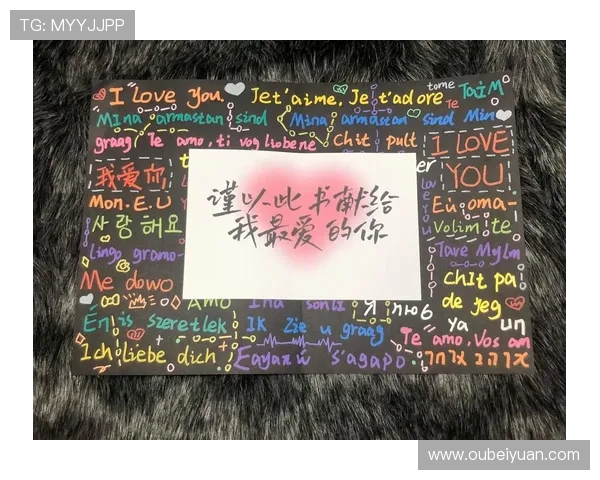 TG: MYYJJPP
I Love You. Je t'aime, Je t'adore
tome Te TaiM
Mina armastan sind Mina armastan sind Min
graag Te amo, ti vog liobene Chit pult
I LOVE
YOU
我爱你
Mon. E. U
사랑해요
Lingo gramo-
Me dowo
er
love you
Eu oma-
Volim te
Tave Mylm
chit pa
de jeg
ya un
谨以此书献给
我最爱的你
Amo Ina sonli
Én is szeretlek Ik Zie u graag
Te amo, Vos am
Ich liebe dich s'agapo
www.oubeiyuan.com